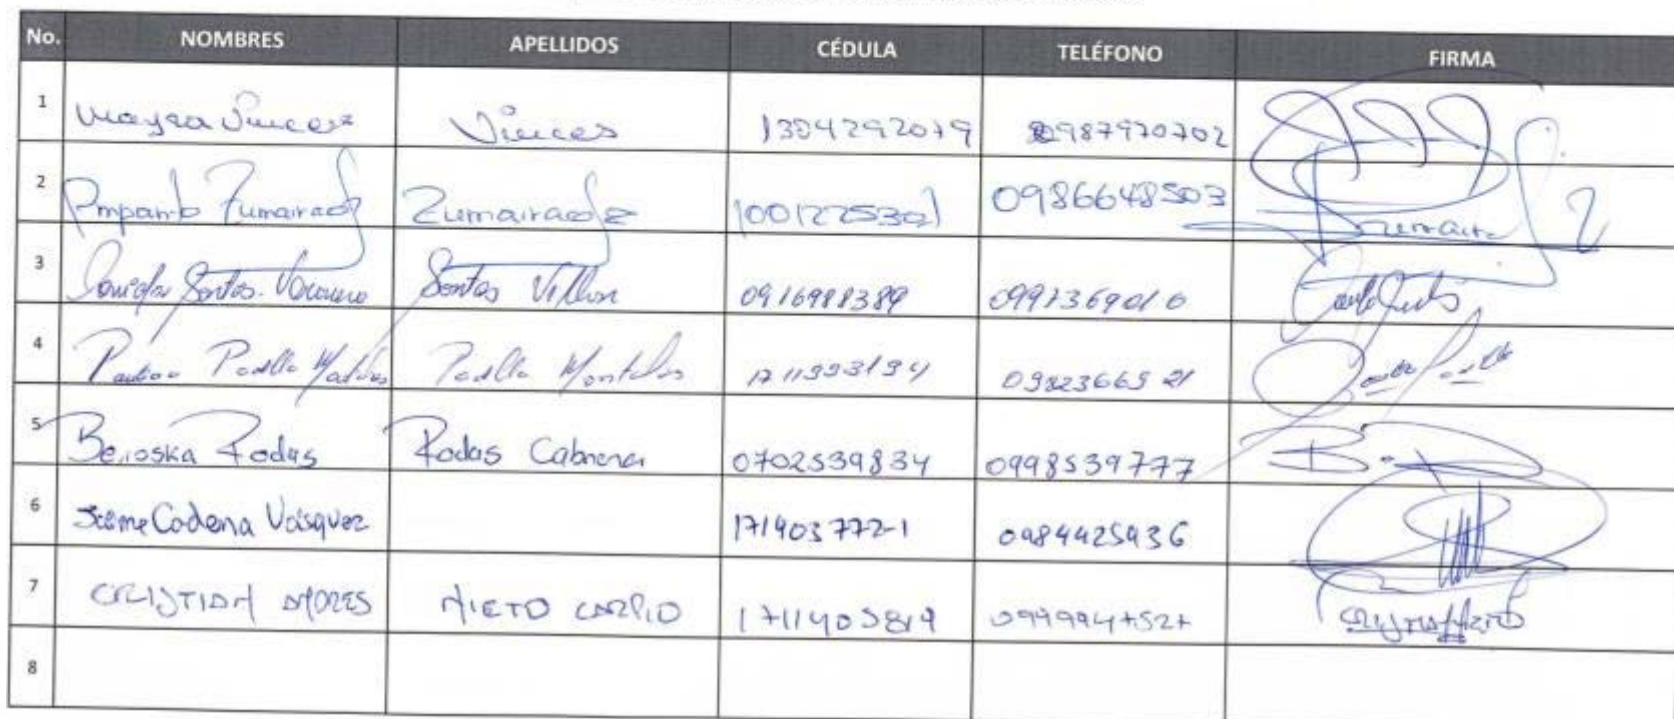 No. NOMBRES APELLIDOS CÉDULA TELÉFONO FIRMA
1 Mayra Vinces Vinces 1304292079 0987970702
2 Amparito Zumarraga Zumarraga 1001225321 0986648503
3 Santos Santos Villon 0916988389 0991369010
4 Padilla Padilla 1711393194
5 Berioska Rodas Rodas Cabrera 0702539834 0998539777
6 Jaime Cadena Vásquez 171903772-1 0984425936
7 CRISTIAN NIETO CARPIO 1711405819 0999947527
8